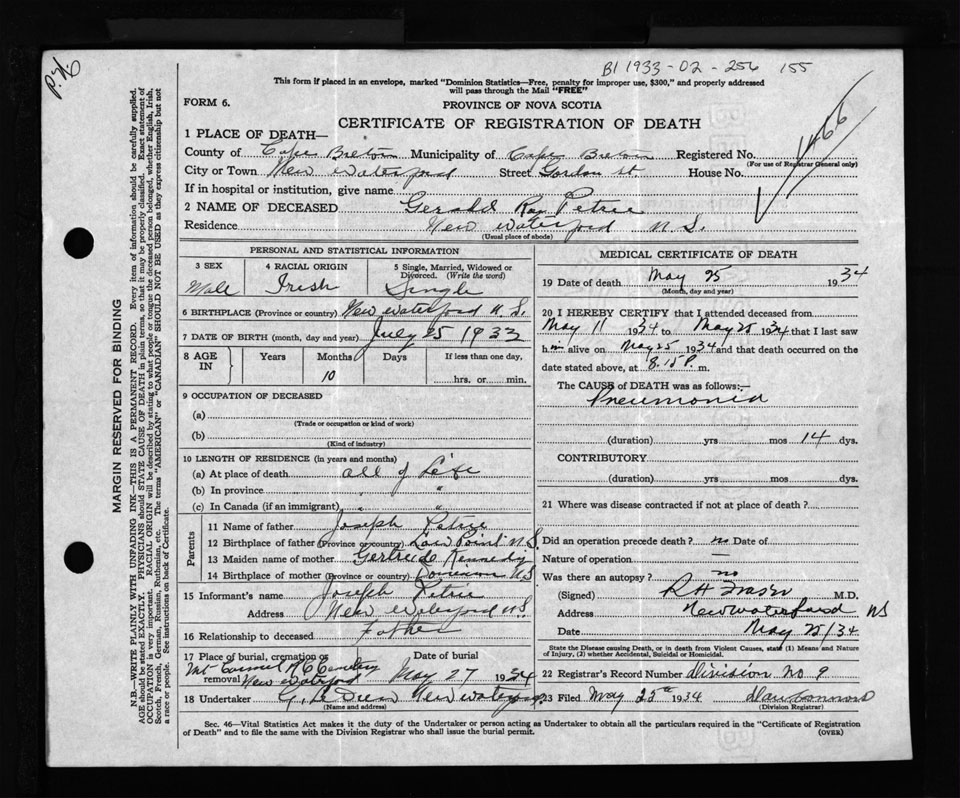 P.N.
B1 1933-02-256 155
1466
This form if placed in an envelope, marked "Dominion Statistics—Free, penalty for improper use, $300," and properly addressed
will pass through the Mail "FREE"
FORM 6.
PROVINCE OF NOVA SCOTIA
CERTIFICATE OF REGISTRATION OF DEATH
1 PLACE OF DEATH—
County of Cape Breton Municipality of Cape Breton Registered No.
(For use of Registrar General only)
City or Town New Waterford Street Gordon st. House No.
If in hospital or institution, give name
2 NAME OF DECEASED Gerald Ray Petrie
Residence New Waterford N.S.
(Usual place of abode)
PERSONAL AND STATISTICAL INFORMATION
3 SEX Male
4 RACIAL ORIGIN Irish
5 Single, Married, Widowed or Divorced. (Write the word) Single
6 BIRTHPLACE (Province or country) New Waterford N.S.
7 DATE OF BIRTH (month, day and year) July 25 1933
8 AGE IN Years Months Days If less than one day,
10 hrs. or min.
9 OCCUPATION OF DECEASED
(a)
(Trade or occupation or kind of work)
(b)
(Kind of industry)
10 LENGTH OF RESIDENCE (in years and months)
(a) At place of death all of Life
(b) In province " "
(c) In Canada (if an immigrant) " "
Parents
11 Name of father Joseph Petrie
12 Birthplace of father (Province or country) Low Point N.S.
13 Maiden name of mother Gertrude Kennedy
14 Birthplace of mother (Province or country) N.S
15 Informant's name Joseph Petrie
Address New Waterford N.S
16 Relationship to deceased Father
17 Place of burial, cremation or removal Mt Carmel R C Cemetery New Waterford May 27 1934
18 Undertaker New Waterford
(Name and address)
MEDICAL CERTIFICATE OF DEATH
19 Date of death May 25 1934
(Month, day and year)
20 I HEREBY CERTIFY that I attended deceased from
May 11 1934 to May 25 1934 that I last saw
him alive on May 25 1934 and that death occurred on the
date stated above, at 8.15 P. m.
The CAUSE of DEATH was as follows:—
Pneumonia
(duration) yrs mos 14 dys.
CONTRIBUTORY
(duration) yrs mos dys.
21 Where was disease contracted if not at place of death?
Did an operation precede death? no Date of
Nature of operation —
Was there an autopsy? no
(Signed) R H Fraser M.D.
Address New Waterford NS
Date May 25/34
State the Disease causing Death, or in death from Violent Causes, state (1) Means and
Nature of Injury, (2) whether Accidental, Suicidal or Homicidal.
22 Registrar's Record Number Division No 9
23 Filed May 25th 1934 Dan Connors
(Division Registrar)
Sec. 46—Vital Statistics Act makes it the duty of the Undertaker or person acting as Undertaker to obtain all the particulars required in the "Certificate of Registration
of Death" and to file the same with the Division Registrar who shall issue the burial permit. (OVER)
MARGIN RESERVED FOR BINDING
N.B.—WRITE PLAINLY WITH UNFADING INK—THIS IS A PERMANENT RECORD. Every item of information should be carefully supplied.
AGE should be stated EXACTLY. PHYSICIANS should STATE CAUSE OF DEATH in plain terms, so that it may be properly classified. Exact statement of
OCCUPATION is very important. RACIAL ORIGIN will be described by stating to what people or tongue the deceased person belonged, whether English, Irish,
Scotch, French, German, Russian, Ruthenian, etc. The terms "AMERICAN" or "CANADIAN" SHOULD NOT BE USED as they express citizenship but not
a race or people. See instructions on back of Certificate.